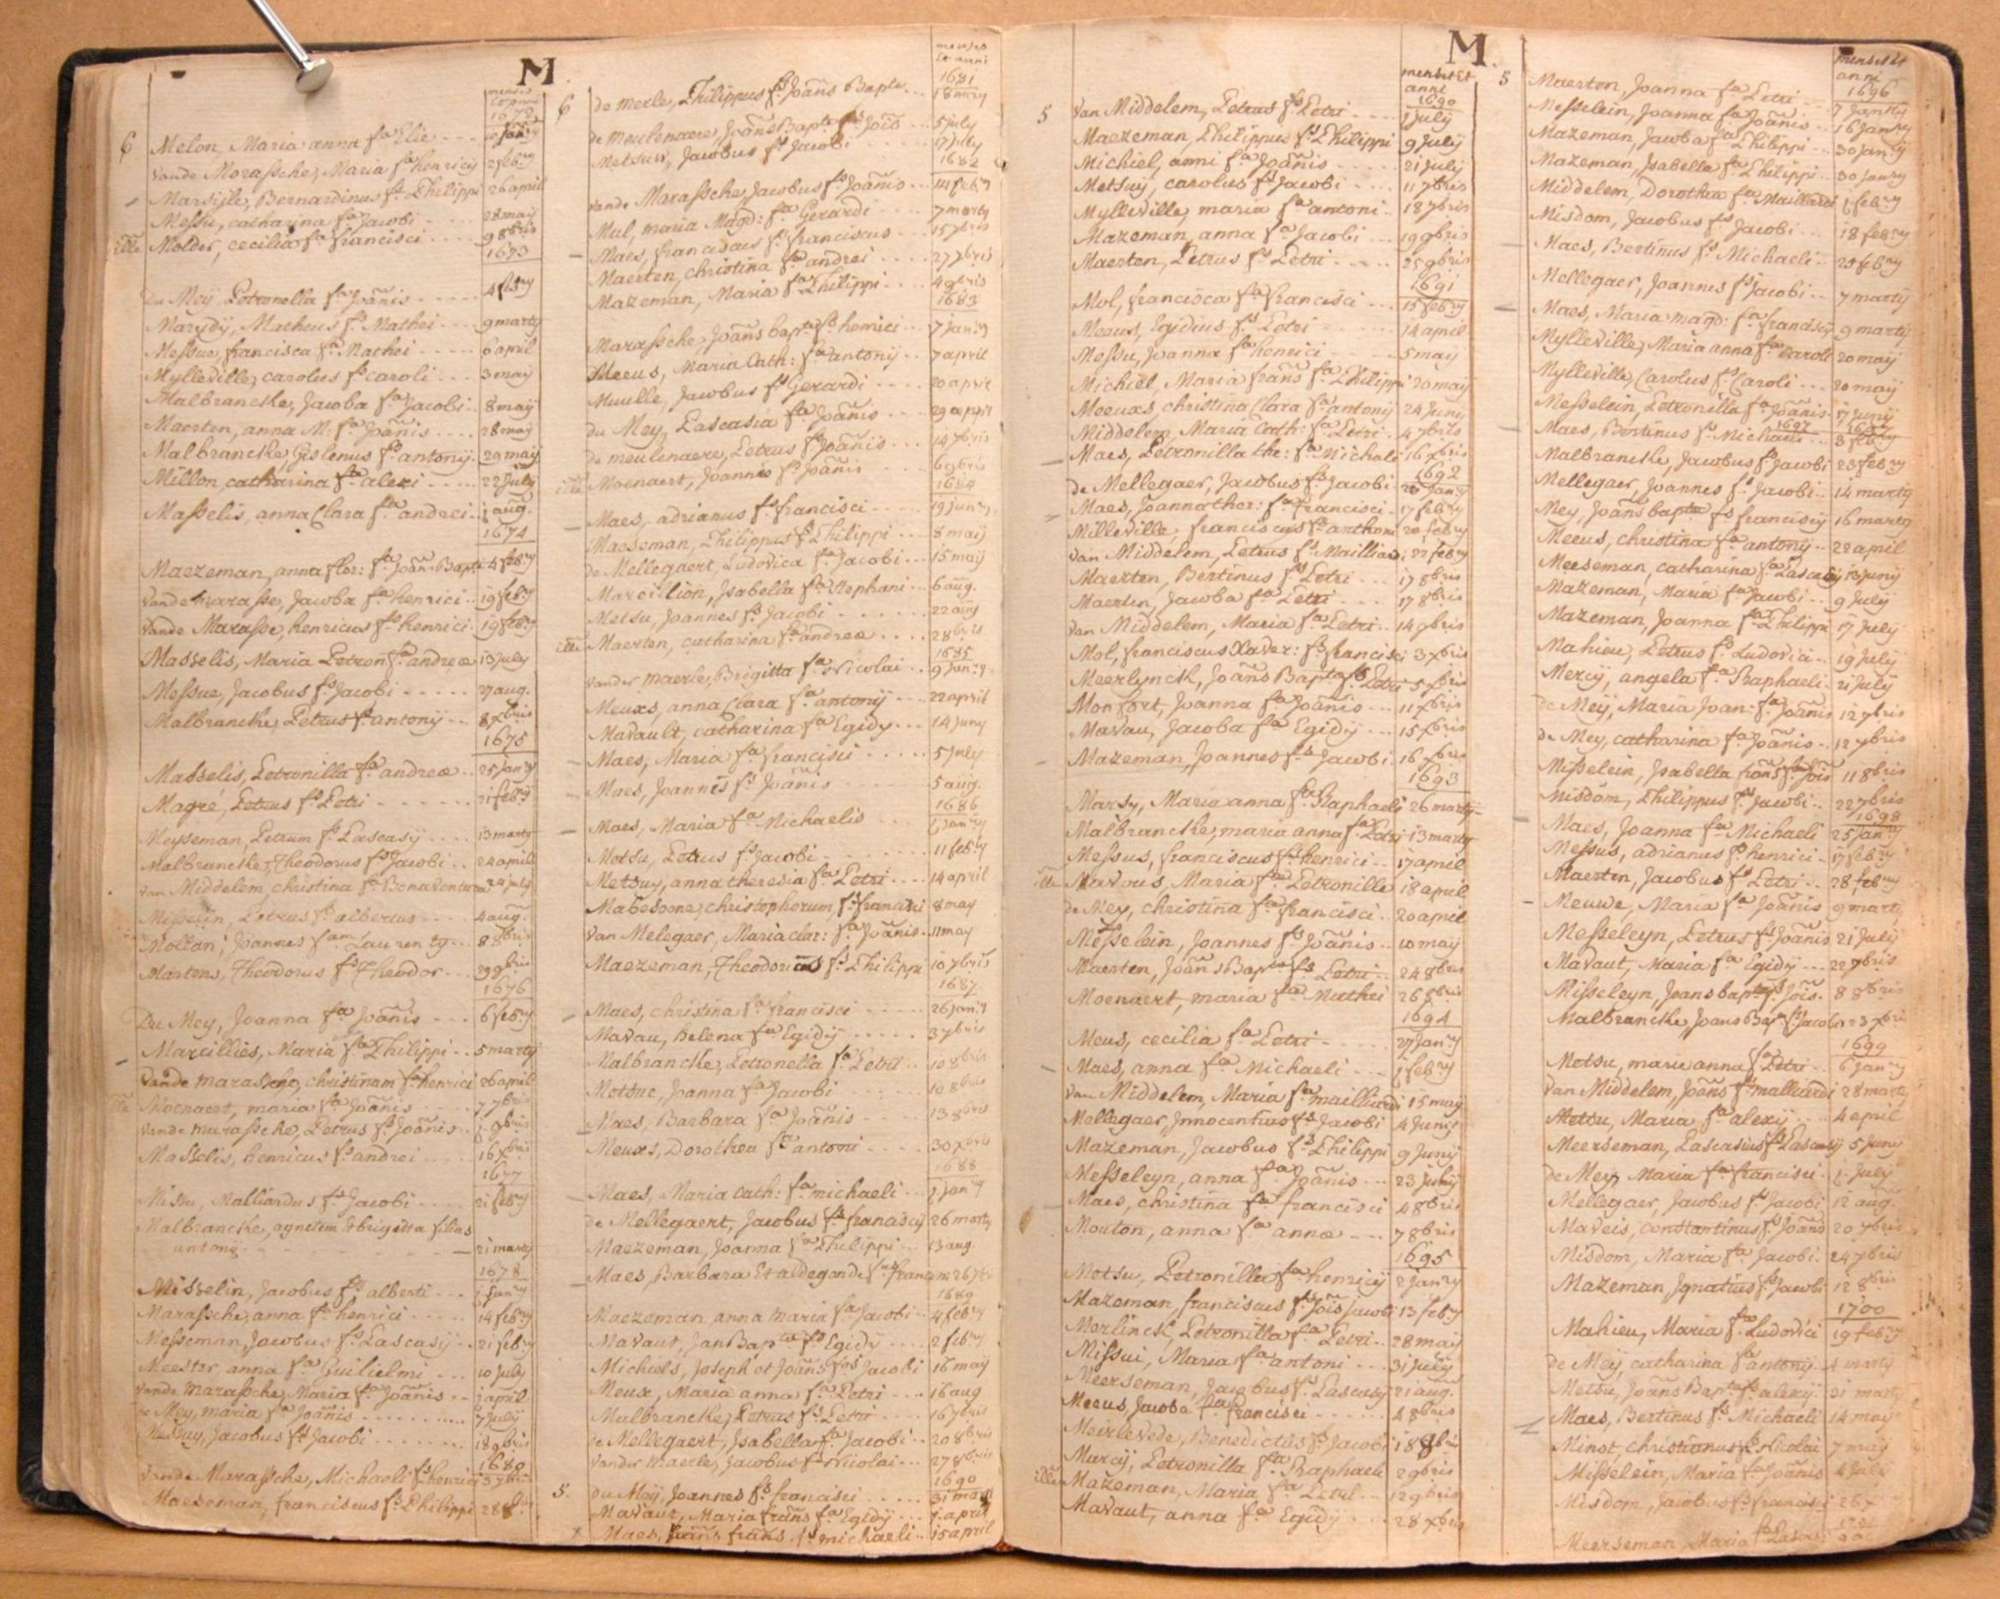 M
mensis et anni
1672
6
Melon, Maria anna fa Elie 10 Janry
vande Morassche, Maria fa henricij 2 febry
Marsijle, Bernardinus fs Philippi 26 april
Messu, catharina fa Jacobi 28 maij
Molder, cecilia fa francisci 9 8bris
1673
Du Meij Petronella fa Joanis 4 febry
Marydij, Matheus fs Mathei 9 marty
Messue, francisca fa Mathei 6 april
Mylleville, carolus fs caroli 3 maij
Malbrancke, Jacoba fa Jacobi 8 maij
Maerten, anna M: fa Joanis 28 maij
Malbrancke Gislenus fs antonij 29 maij
Millon, catharina fa alexi 22 July
Masselis, anna Clara fa andrei 1 aug.
1674
Maezeman, anna flor: fa Joan Bapta 4 febry
vande marasse, Jacoba fa henrici 19 febry
vande Marasse, henricus fs henrici 19 febry
Masselis, Maria Petron fa andreæ 13 July
Messue, Jacobus fs Jacobi 27 aug.
Malbrancke, Petrus fs antonij 8 xbris
1675
Masselis, Petronilla fa andreæ 25 Janry
Magré, Petrus fs Petri 21 febry
Meyseman, Petrum fs Pascasij 13 marty
Malbrancke, Theodorus fs Jacobi 24 april
van Middelem, christina fa Bonaventura 24 july
Messelijn, Petrus fs albertus 4 aug.
Moltan, Joannes fam Laurenty 8 8bris
Martens, Theodorus fs Theodor 29 9bris
1676
Du Mey, Joanna fa Joanis 6 febry
Marcillies, Maria fa Philippi 5 marty
vande marassche, christinam fa henrici 26 april
Moenaert, maria fa Joanis 7 7bris
vande marassche, Petrus fs Joanis 1 9bris
Masselis, henricus fs andrei 16 xbris
1677
Missu, Malliardus fs Jacobi 21 febry
Malbrancke, agnetem et brigitta filias
antonij 21 marty
1678
Misselin, Jacobus fs alberti 1 Janry
Marassche, anna fa henrici 14 febry
Messeman, Jacobus fs Pascasij 21 febry
Meester anna fa Guilielmi 10 July
vande marassche, Maria fa Joanis 1 april
de Mey, maria fa Joanis 7 July
Metsuy, Jacobus fs Jacobi 18 9bris
1680
vande Marassche, Michaeli fs henrici 3 7bris
Maeseman, franciscus fs Philippi 28 8bris
mensis et anni
1681
6
de Merle, Philippus fs Joans Bapte 18 marty
de Meulenaere, Joans Bapta fs Jois 5 july
Metsuw, Jacobus fs Jacobi 17 july
1682
vande Marassche, Jacobus fs Joanis 14 febry
Mul, maria Magd: fa Gerardi 7 marty
Maes, franciscus fs franciscus 15 7bris
Maerten, christina fa andrei 27 7bris
Mazeman, Maria fa Philippi 4 9bris
1683
Marassche, Joans bapta fs henrici 7 Janry
Meeus, Maria Cath: fa antonij 7 april
Muulle, Jacobus fs Gerardi 20 april
du Mey, Pascasia fa Joanis 29 april
de meulenaere, Petrus fs Joanis 14 7bris
Moenaert, Joannes fs Joanis 6 9bris
1684
Maes, adrianus fs francisci 19 Janry
Maeseman, Philippus fs Philippi 8 maij
de Mellegaert, Ludovica fa Jacobi 15 maij
Marcillion, Isabella fa Stephani 6 aug.
Metsu, Joannes fs Jacobi 22 aug
Maerten, catharina fa andreæ 2 8bris
1685
vander maerle, Brigitta fa Nicolai 9 Janry
Meuxs, anna Clara fa antonij 22 april
Mavault, catharina fa Egidij 14 Juny
Maes, Maria fa francisci 5 July
Maes, Joannis fs Joanis 5 aug.
1686
Maes, Maria fa Michaelis 6 Janry
Motsu, Petrus fs Jacobi 11 febry
Metsuy, anna theresia fa Petri 14 april
Mabesone, christophorum fs francisci 8 may
van Melegaer, Maria clar: fa Joanis 11 may
Maezeman, Theodorius fs Philippi 10 7bris
1687
Maes, christina fa francisci 26 Janry
Mavau, Helena fa Egidij 3 7bris
Malbrancke, Petronella fa Petri 10 8bris
Motsue, Joanna fa Jacobi 10 8bris
Maes, Barbara fa Joanis 13 8bris
Meuxs, Dorothea fa antoni 30 xbris
1688
Maes, Maria Cath: fa michaeli 7 Janry
de Mellegaert, Jacobus fs francisij 26 marty
Maezeman, Joanna fa Philippi 13 aug.
Maes, Barbara et aldegonde fæ francisci 26 7bris
1689
Maezeman, anna maria fa Jacobi 4 febry
Mavaut, Jan Bapta fs Egidij 2 febry
Michiels, Joseph et Joans fos Jacobi 16 maij
Meux, Maria anna fa Petri 16 aug
Malbrancke, Petrus fs Petri 16 7bris
de Mellegaert, Isabella fa Jacobi 20 8bris
vander Maerle, Jacobus fs Nicolai 27 8bris
1690
5.
du Moij, Joannes fs francisci 31 mart
Mavaut, Maria frans fa Egidij 7 april
Maes, Joans frans fs michaeli 15 april
M.
mensis et anni
1690
5
van Middelem, Petrus fs Petri 1 july
Maezeman, Philippus fs Philippi 9 July
Michiel, anni fa Joanis 21 July
Metsuy, carolus fs Jacobi 11 7bris
Mylleville, maria fa antoni 18 7bris
Mazeman, anna fa Jacobi 19 9bris
Maerten, Petrus fs Petri 25 9bris
1691
Mol, francisca fa francisci 15 febry
Meeus, Egidius fs Petri 14 april
Messu, Joanna fa henrici 5 may
Michiel, Maria frans fa Philippi 20 maij
Meeuxs, christina Clara fa antonij 24 Juny
Middelem, Maria Cath: fa Petri 4 7bris
Maes, Petronilla the: fa Michaeli 16 xbris
1692
de Mellegaer, Jacobus fs Jacobi 26 Janry
Maes, Joanna ther: fa francisci 17 febry
Milleville, franciscus fs anthoni 20 febry
van Middelem, Petrus fs Mailliardi 22 febry
Maerten, Bertinus fs Petri 17 8bris
Maerten, Jacoba fa Petri 17 8bris
van Middelem, Maria fa Petri 14 9bris
Mol, franciscus Xaver: fs francisci 3 xbris
Meerlynck, Joans Bapta fs Petri 5 xbris
Monfort, Joanna fa Joanis 11 xbris
Mavau, Jacoba fa Egidij 15 xbris
Mazeman, Joannes fs Jacobi 16 xbris
1693
Marsy, Maria anna fa Raphaeli 26 marty
Malbrancke, maria anna fa Petri 13 marty
Messus, franciscus fs henrici 17 april
Mavous, Maria fa Petronille 18 april
de Mey, christina fa francisci 20 april
Messelein, Joannes fs Joanis 10 may
Maerten, Joans Bapta fs Petri 24 8bris
Moenaert, maria fa Mathei 26 8bris
1694
Meus, cecilia fa Petri 27 Janry
Maes, anna fa Michaeli 1 febry
van Middelem, Maria fa mailliardi 15 may
Mellegaer, Innocentius fs Jacobi 4 Juny
Mazeman, Jacobus fs Philippi 9 Juny
Messeleyn, anna fa Joanis 23 July
Maes, christina fa francisci 4 8bris
Mouton, anna fa annæ 7 8bris
1695
Motsu, Petronilla fa henricij 2 Janry
Mazeman, franciscus fs Jois Jacobi 13 febry
Merlinck, Petronilla fa Petri 28 may
Missui, Maria fa antoni 31 July
Meerseman, Jacobus fs Pascasij 21 aug.
Meeus, Jacoba fa francisci 4 8bris
Meirlevede, Benedictus fs Jacobi 18 8bris
Marcij, Petronilla fa Raphaeli 2 9bris
Mazeman, Maria fa Petri 12 9bris
Mavaut, anna fa Egidij 28 xbris
mensis et anni
1696
5
Maerten, Joanna fa Petri 7 Janry
Messelein, Joanna fa Joanis 16 Janry
Mazeman, Jacoba fa Philippi 30 Janry
Mazeman, Isabella fa Philippi 30 Janry
Middelem, Dorothea fa Mailliardi 1 febry
Misdom, Jacobus fs Jacobi 18 febry
Maes, Bertinus fs Michaeli 25 febry
Mellegaer, Joannes fs Jacobi 7 martij
Maes, Maria magd: fa francisij 9 martij
Mylleville, Maria anna fa Caroli 20 maij
Mylleville, Carolus fs Caroli 20 maij
Messelein, Petronilla fa Joanis 17 Junij
1697
Maes, Bertinus fs Michaeli 3 febry
Malbrancke, Jacobus fs Jacobi 23 febry
Mellegaer, Joannes fs Jacobi 14 marty
Mey, Joans bapta fs francisij 16 marty
Meeus, christina fa antonij 22 april
Meeseman, catharina fa Pascasij 13 Junij
Mazeman, Maria fa Jacobi 9 July
Mazeman, Joanna fa Philippi 17 July
Mahieu, Petrus fs Ludovici 19 July
Mercij, angela fa Raphaeli 21 july
de Meij, Maria Joan: fa Joanis 12 7bris
de Mey, catharina fa Joanis 12 7bris
Misselein, Isabella frans fa Jois 11 8bris
Misdom, Philippus fs Jacobi 22 7bris
1698
Maes, Joanna fa Michaeli 25 Janry
Messus, adrianus fs henrici 17 febry
Maerten, Jacobus fs Petri 28 febry
Meuwe, Maria fa Joanis 9 marty
Messeleyn, Petrus fs Joanis 21 July
Mavaut, Maria fa Egidij 22 7bris
Misseleyn, Joans bapta fs Jois. 8 8bris
Malbrancke, Joans Bap fs Jacobi 23 xbris
1699
Motsu, marie anna fa Petri 6 Janry
van Middelem, Joans fs malliardi 28 marty
Motsu, Maria fa alexij 4 april
Meerseman, Pascasius fs Pascasij 5 Juny
de Mey, Maria fa francisci 1 July
Mellegaer, Jacobus fs Jacobi 12 aug.
Maveis, constantinus fs Joans 20 7bris
Misdom, Maria fa Jacobi 24 7bris
Mazeman, Ignatius fs Jacobi 12 8bris
1700
Mahieu, Maria fa Ludovici 19 febry
de Meij, catharina fa antonij 4 marty
Metsu, Joans Bapta fs alexij 31 marty
Maes, Bertinus fs Michaeli 14 may
Minot, christianus fs Nicolai 7 may
Misselein, Maria fa Joanis 4 July
Misdom, Jacobus fs francisci 26
Meerseman, Maria fa Pascasij